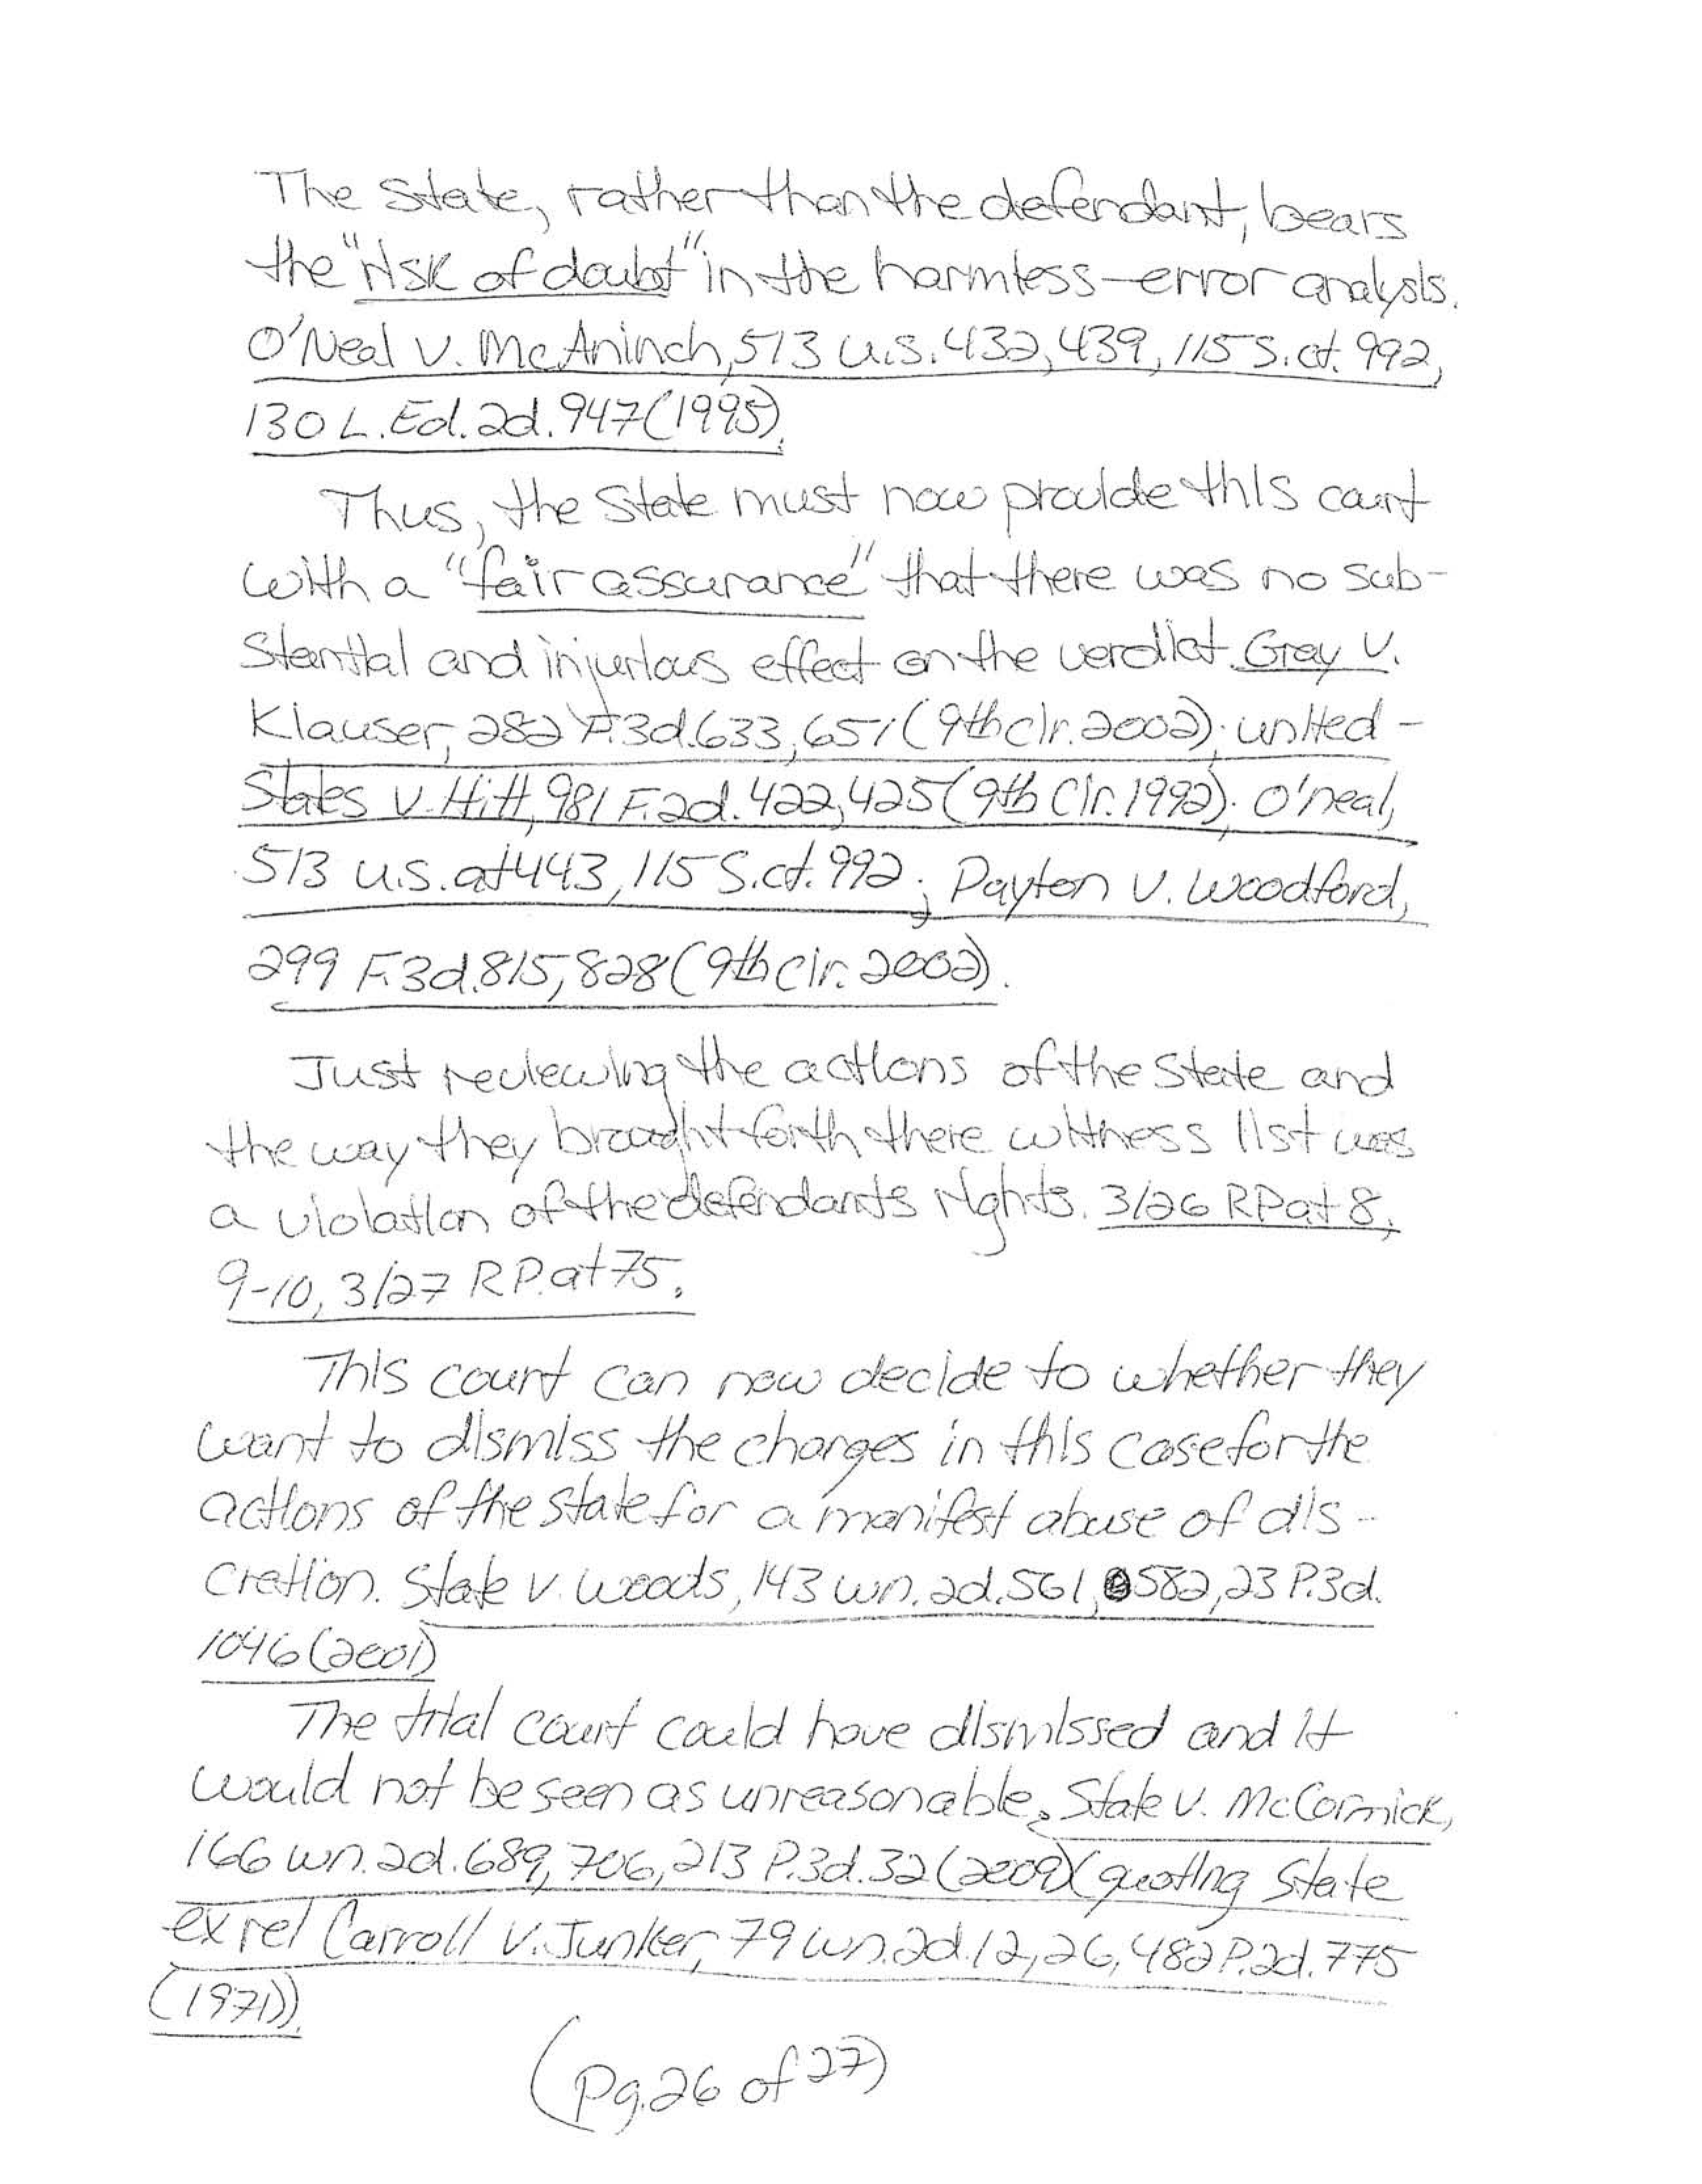 The State, rather than the defendant, bears
the "risk of doubt" in the harmless-error analysis.
O'Neal v. McAninch, 513 U.S. 432, 439, 115 S.ct. 992,
130 L.Ed.2d.947(1995).
Thus, the State must now provide this court
with a "fair assurance" that there was no sub-
stantial and injurious effect on the verdict. Gray v.
Klauser, 282 F.3d.633,651(9th cir.2002); united-
States v. Hitt, 981 F.2d.422,425(9th Cir.1992); O'neal,
513 U.S. at 443, 115 S.ct. 992; Payton v. Woodford,
299 F.3d.815,828(9th cir.2002).
Just reviewing the actions of the State and
the way they brought forth there witness list was
a violation of the defendants rights. 3/26 RP at 8,
9-10, 3/27 R.P. at 75.
This court can now decide to whether they
want to dismiss the charges in this case for the
actions of the state for a manifest abuse of dis-
cretion. State v. Woods, 143 wn.2d.561, 582, 23 P.3d.
1046(2001)
The trial court could have dismissed and it
would not be seen as unreasonable. State v. McCormick,
166 wn.2d.689,706,213 P.3d.32(2009)(quoting State
ex rel Carroll v. Junker, 79 wn.2d.12,26,482 P.2d.775
(1971)).
(pg.26 of 27)